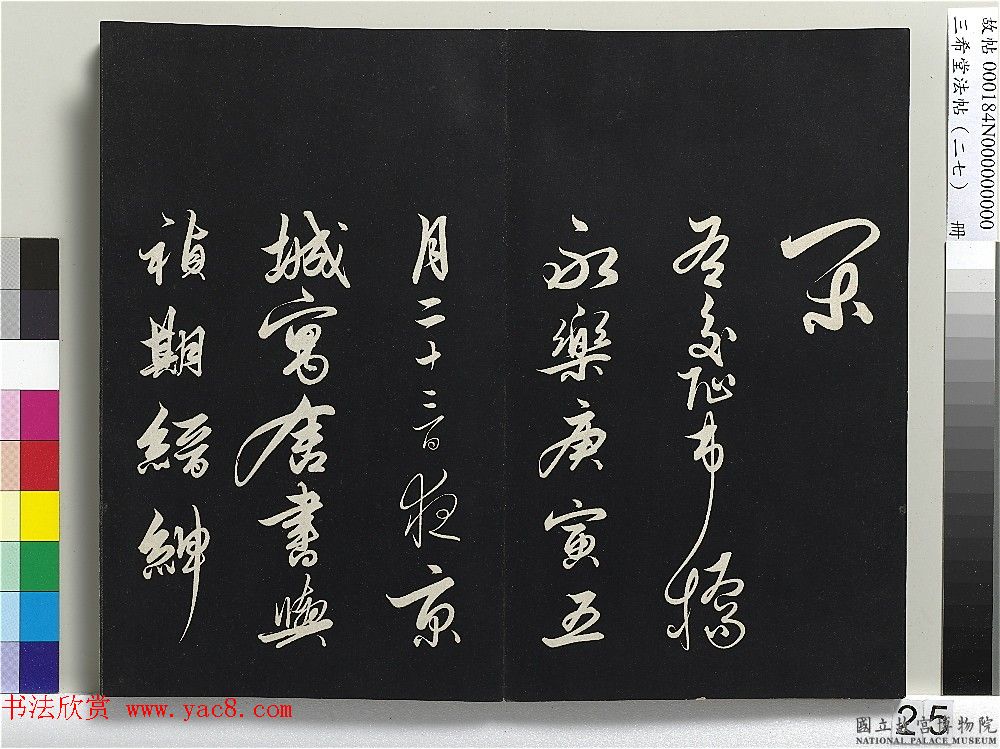 永樂庚寅五
月二十三日夜京
城寓舍書與
禎期縉紳
故帖 000184N000000000
三希堂法帖（二七） 冊
书法欣赏 www.yac8.com
25
國立故宮博物院
NATIONAL PALACE MUSEUM